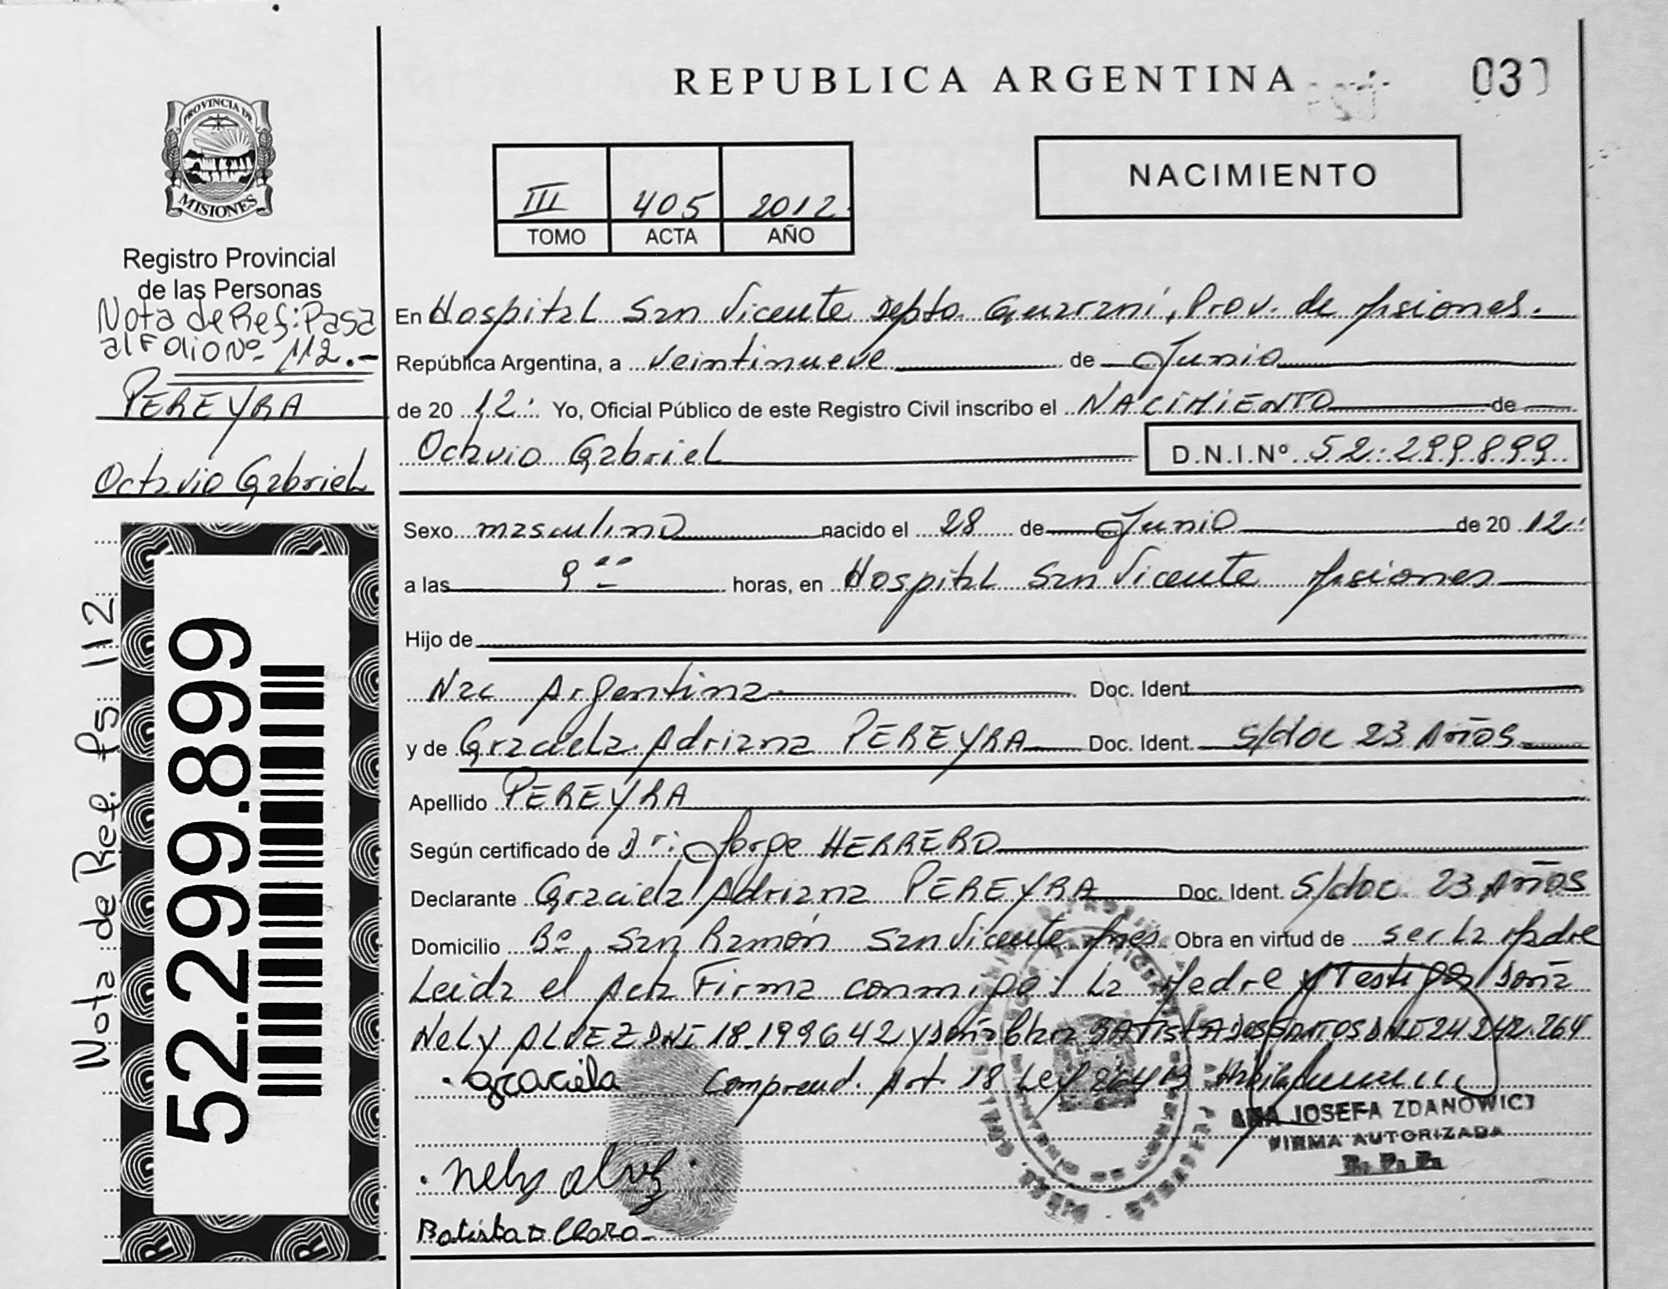 REPUBLICA ARGENTINA
03
PROVINCIA DE
MISIONES
Registro Provincial
de las Personas
Nota de Ref: Pasa
al Folio Nº 112.-
PEREYRA
Octavio Gabriel
Nota de Ref. fs. 112
52.299.899
III 405 2012
TOMO ACTA AÑO
NACIMIENTO
En Hospital San Vicente Depto. Guaraní, Prov. de Misiones.
República Argentina, a veintinueve de Junio
de 2012. Yo, Oficial Público de este Registro Civil inscribo el NACIMIENTO de
Octavio Gabriel D.N.I.Nº 52.299.899
Sexo masculino nacido el 28 de Junio de 2012.
a las 9 horas, en Hospital San Vicente Misiones
Hijo de
Nac Argentina Doc. Ident.
y de Graciela Adriana PEREYRA Doc. Ident. S/doc 23 Años
Apellido PEREYRA
Según certificado de Dr: Jorge HERRERO
Declarante Graciela Adriana PEREYRA Doc. Ident. S/doc. 23 Años
Domicilio Bº San Ramón San Vicente Mnes. Obra en virtud de ser La Madre
Leida el Acta Firma conmigo: La Madre y Testigos Doña
Nely ALVEZ DNI 18.199642 y Doña BATISTA DOS SANTOS DNI 24.242.264
graciela Comprend. Art. 18 Ley 26413
ANA JOSEFA ZDANOWICZ
FIRMA AUTORIZADA
R.P.P.
Nely alvez
Batista D Clara